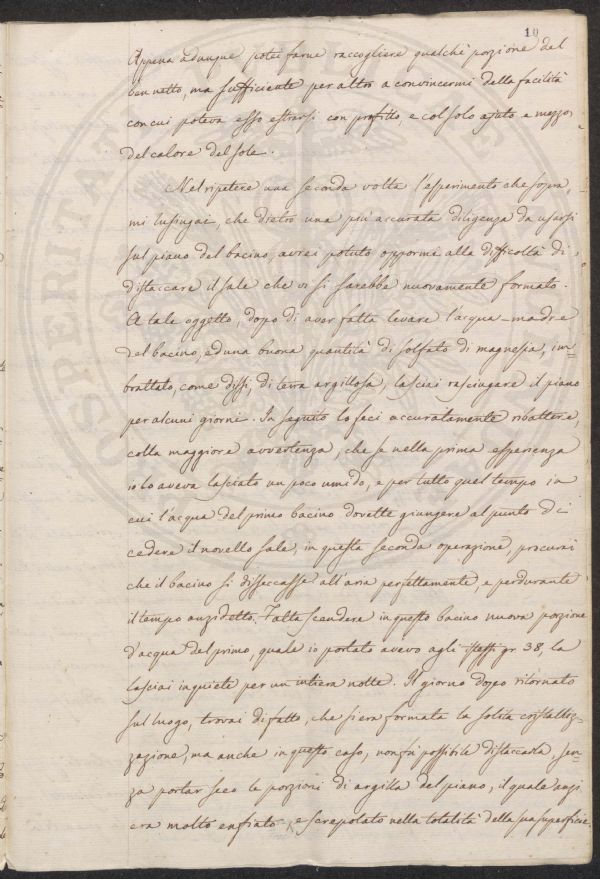 10
Appena adunque potei farne raccogliere qualche porzione del
ben netto, ma sufficiente per altro a convincermi della facilità
con cui poteva esso estrarsi con profitto, e col solo ajuto e mezzo
del calore del sole.
Nel ripetere una seconda volta l'esperimento che sopra,
mi lusingai, che dietro una più accurata diligenza da usarsi
sul piano del bacino, avrei potuto oppormi alla difficoltà di
distaccare il sale che vi si sarebbe nuovamente formato.
A tale oggetto, dopo di aver fatta levare l'acqua-madre
del bacino, ed una buona quantità di solfato di magnesia, im=
brattato, come dissi, di terra argillosa, lasciai rasciugare il piano
per alcuni giorni. In seguito lo feci accuratamente ribattere,
colla maggiore avvertenza, che se nella prima esperienza
io lo aveva lasciato un poco umido, e per tutto quel tempo in
cui l'acqua del primo bacino dovette giungere al punto di
cedere il novello sale, in questa seconda operazione, procurai
che il bacino si disseccasse all'aria perfettamente, e perdurante
il tempo anzidetto. Fatta scendere in questo bacino nuova porzione
d'acqua del primo, quale io portato avevo agli stessi gr 38, la
lasciai in quiete per un intiera notte. Il giorno dopo ritornato
sul luogo, trovai di fatto, che si era formata la solita cristalliz=
zazione, ma anche in questo caso, non fu possibile distaccarla, sen=
za portar seco le porzioni di argilla del piano, il quale anzi
era molto enfiato, e screpolato nella totalità della sua superficie.